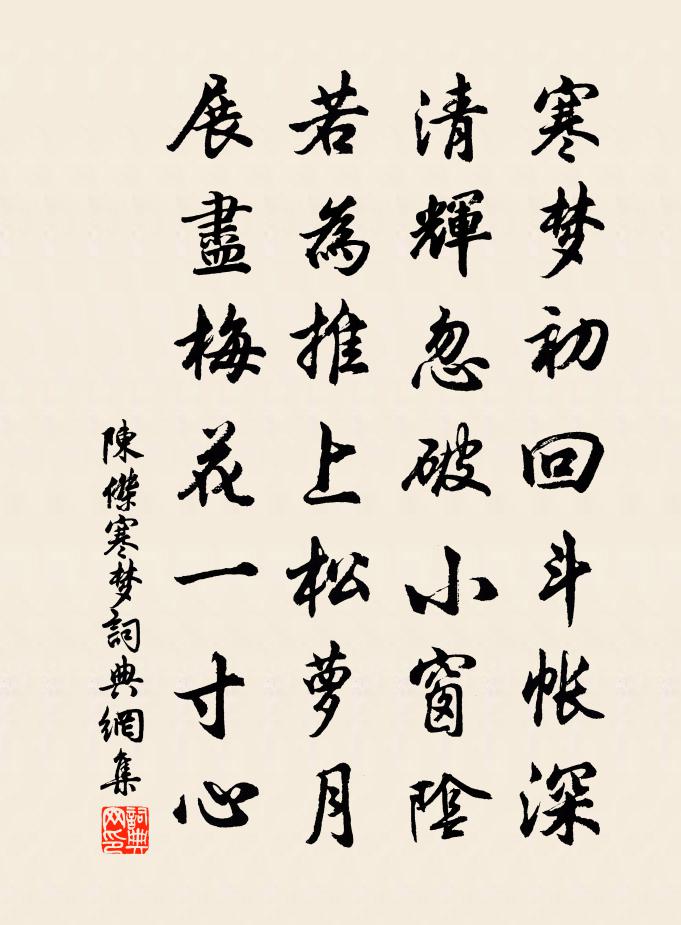 寒梦初回斗帐深
清輝忽破小窗陰
若為推上松萝月
展盡梅花一寸心
陳傑寒梦詞典網集
詞典网印